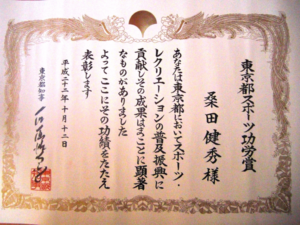 東京都スポーツ功労賞
桑田健秀様
あなたは東京都においてスポーツ・
レクリエーションの普及振興に
貢献しその成果はまことに顕著
なものがありました
よってここにその功績をたたえ
表彰します
平成二十二年十月十二日
東京都知事